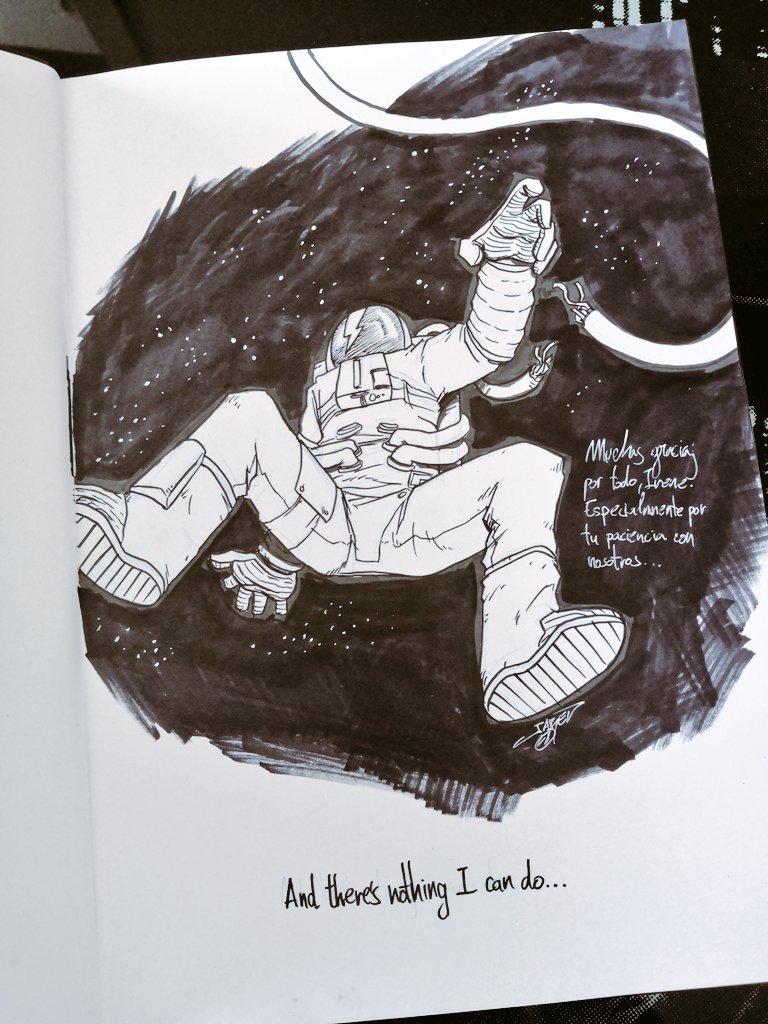 Muchas gracias
por todo, Irene.
Especialmente por
tu paciencia con
nosotros...
And there's nothing I can do...